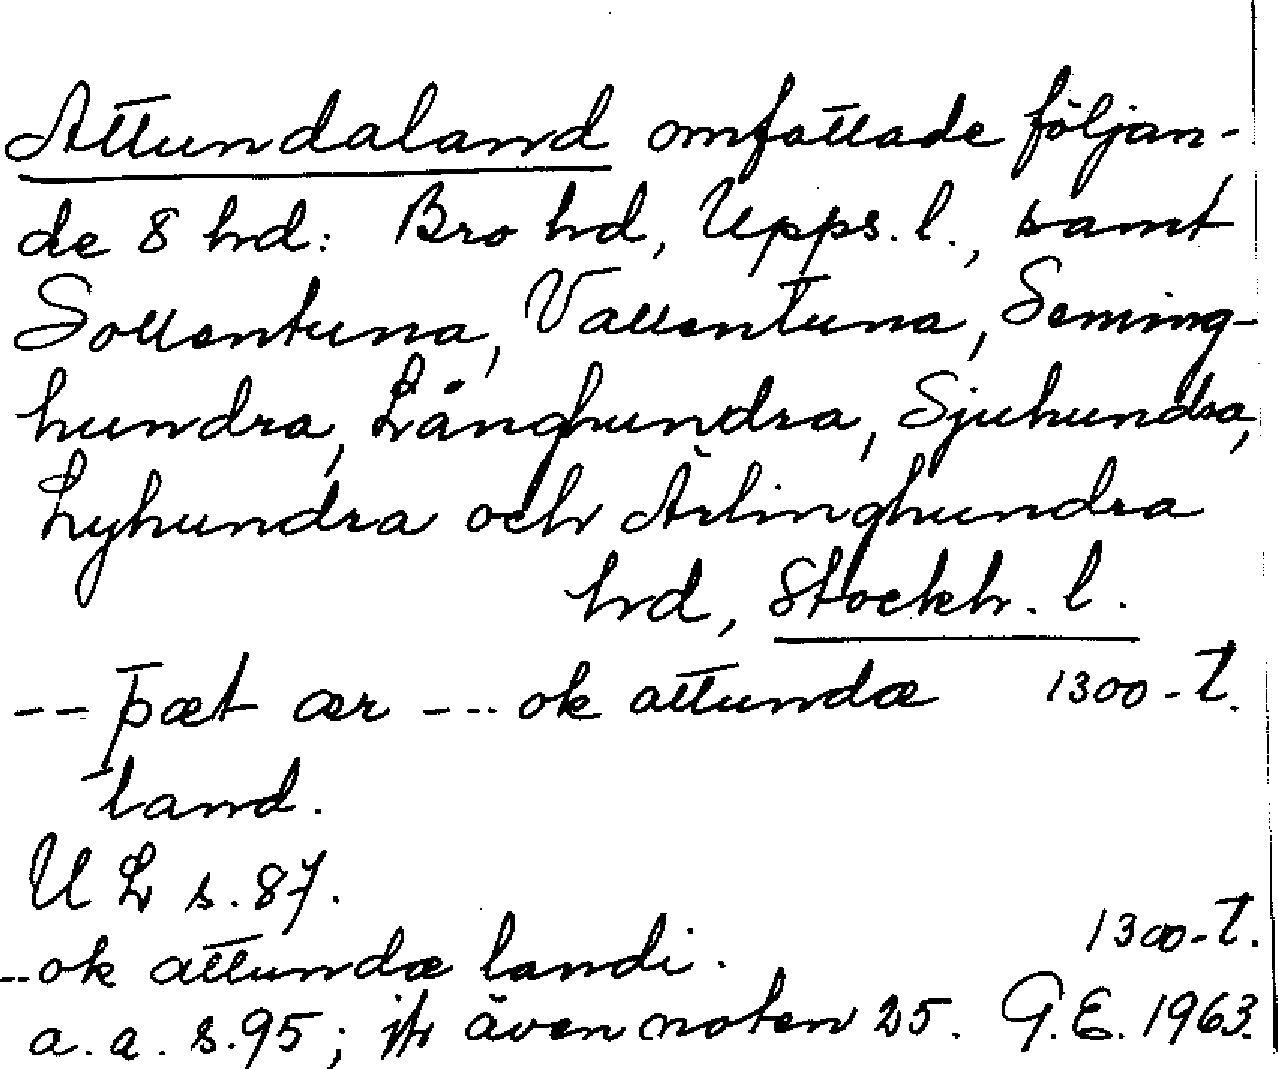 Attundaland omfattade följan-
de 8 hrd: Bro hd, Upps. l., samt
Sollentuna, Vallentuna, Seming-
hundra, Långhundra, Sjuhundra,
Lyhundra och Ärlinghundra
hrd, Stockh. l.
-- þæt ær --- ok attundæ 1300-t.
land.
U L s. 87.
-- ok attundæ landi. 1300-t.
a. a. s. 95; jfr även noten 25. G.E. 1963.